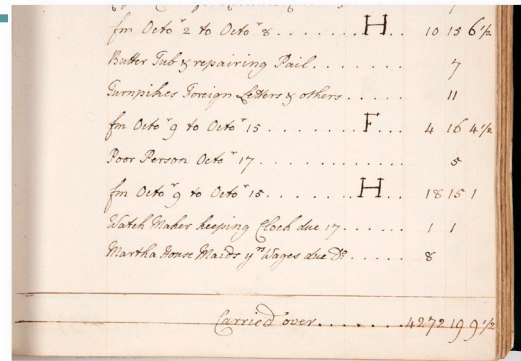 fm Octo.r 2 to Octo.r 8 . . . . . . . . H . . 10 15 6 1/2
Butter Tub & repairing Pail . . . . . . . 7
Turnpikes Foreign Letters & others . . . . . 11
fm Octo.r 9 to Octo.r 15 . . . . . . . . F . . . 4 16 4 1/2
Poor Person Octo.r 17 . . . . . . . . . . . . 5
fm Octo.r 9 to Octo.r 15 . . . . . . . . H . . . 18 15 1
Watch Maker keeping Clock due 17 . . . . . . 1 1
Martha House Maids yrs Wages due Do . . . . . 8
Carried over . . . . . . . 4272 19 9 1/2